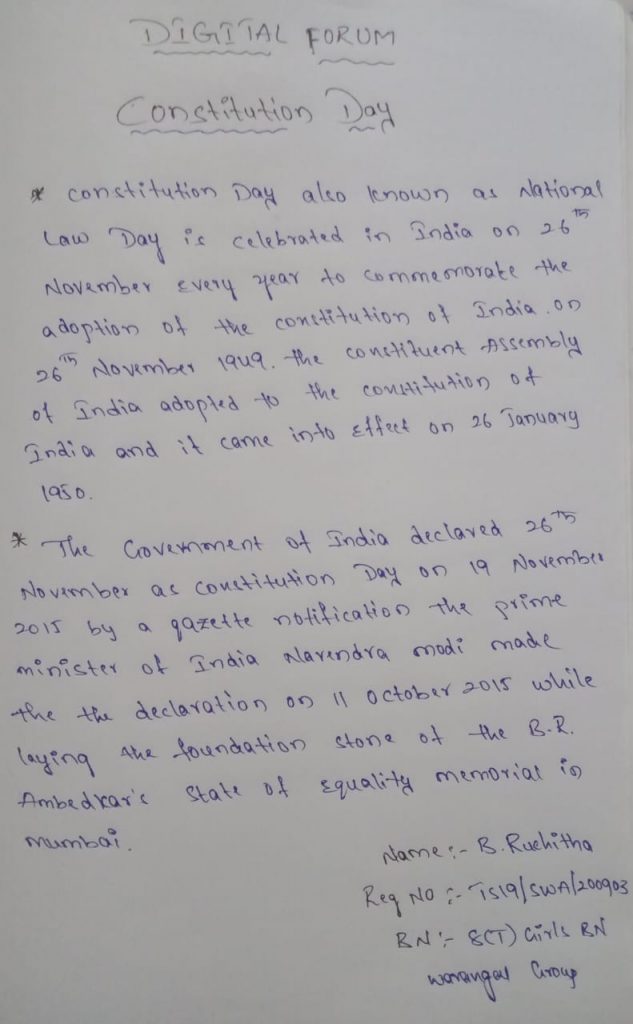 DIGITAL FORUM
Constitution Day
* constitution Day also known as National
Law Day is celebrated in India on 26th
November Every year to commemorate the
adoption of the constitution of India. on
26th November 1949. the constituent Assembly
of India adopted to the constitution of
India and it came into effect on 26 January
1950.
* The Government of India declared 26th
November as constitution Day on 19 November
2015 by a gazette notification the prime
minister of India Narendra modi made
the the declaration on 11 october 2015 while
laying the foundation stone of the B.R.
Ambedkar's state of Equality memorial in
mumbai.
Name :- B. Ruchitha
Reg No :- TS19/SWA/200903
BN :- 8(T) Girls BN
warangal Group